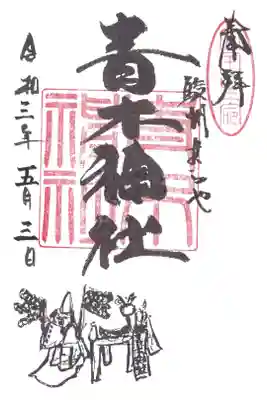 奉拝
駿州
青木神社
令和三年 五月 三日
青木
神社